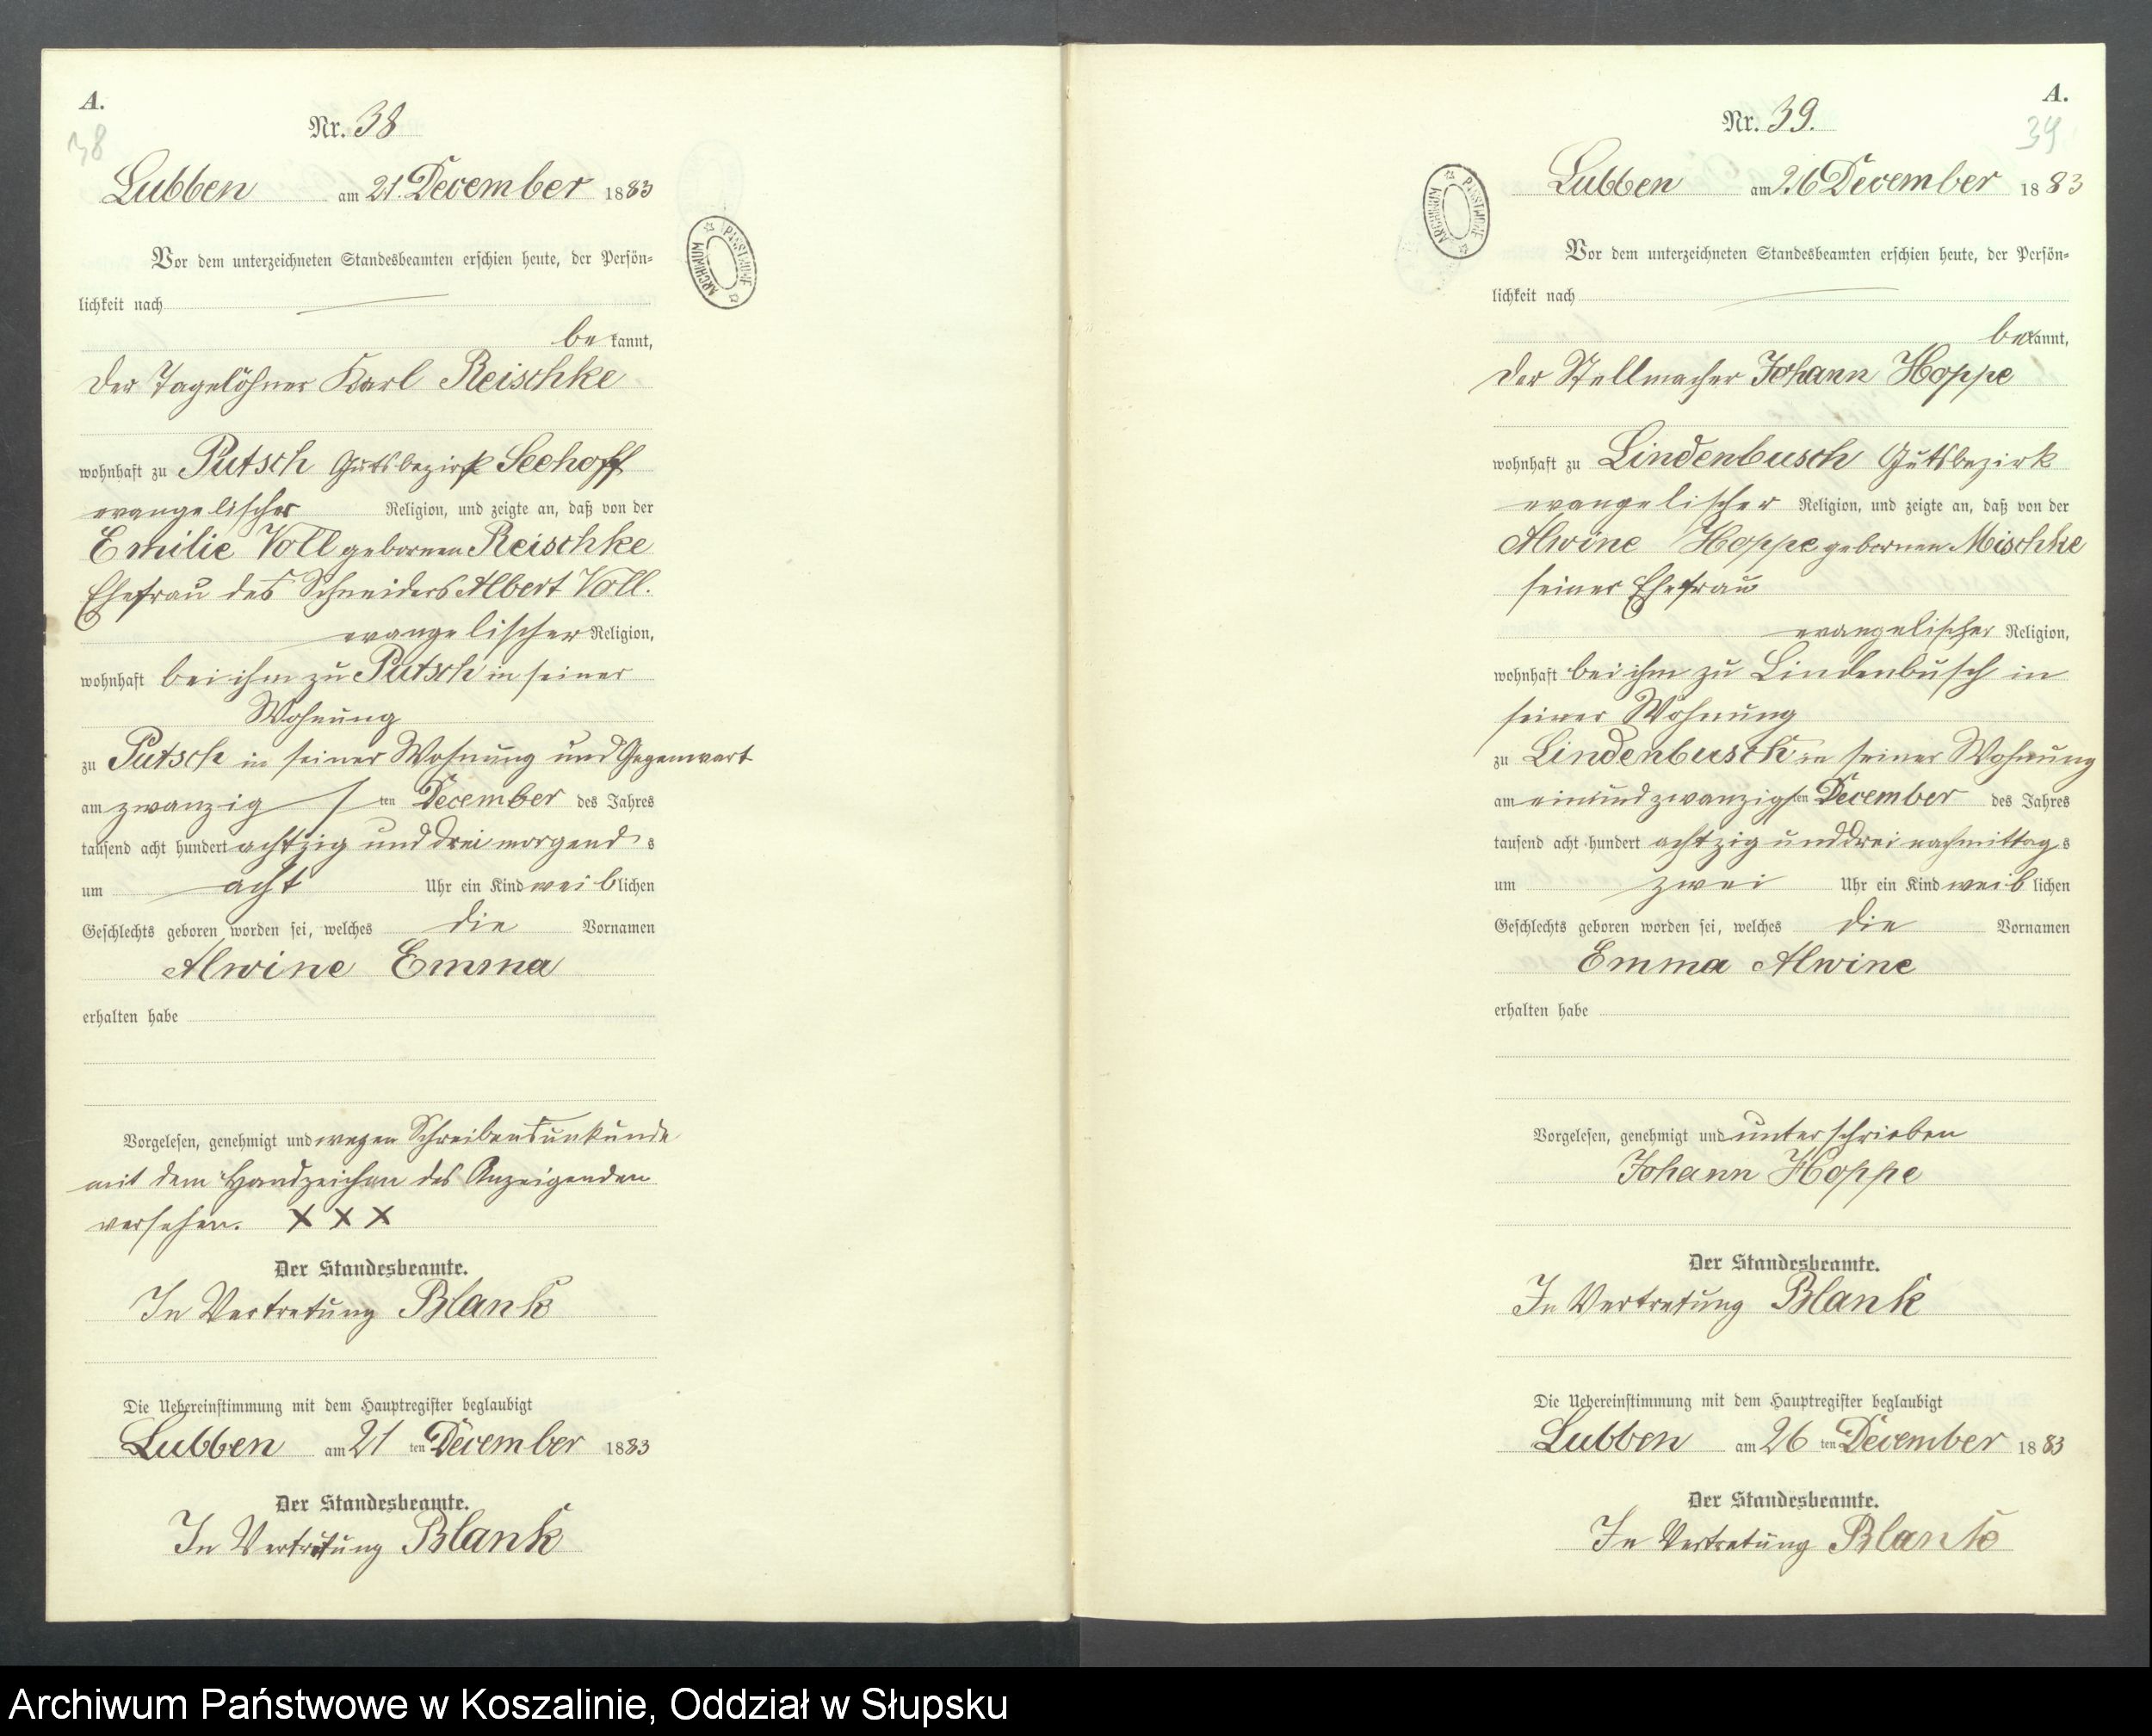 A.
38
Nr. 38
Lubben am 21. December 1883
Vor dem unterzeichneten Standesbeamten erschien heute, der Persön-
lichkeit nach
bekannt,
der Tagelöhner Karl Reischke
wohnhaft zu Putsch Gutsbezirk Seehoff
evangelischer Religion, und zeigte an, daß von der
Emilie Voll gebornen Reischke
Ehefrau des Schneiders Albert Voll.
evangelischer Religion,
wohnhaft bei ihm zu Putsch in seiner
Wohnung
zu Putsch in seiner Wohnung und Gegenwart
am zwanzigsten December des Jahres
tausend acht hundert achtzig und drei morgends
um acht Uhr ein Kind weiblichen
Geschlechts geboren worden sei, welches die Vornamen
Alwine Emma
erhalten habe
Vorgelesen, genehmigt und wegen Schreibensunkunde
mit dem Handzeichen des Anzeigenden
versehen. X X X
Der Standesbeamte.
In Vertretung Blank
Die Uebereinstimmung mit dem Hauptregister beglaubigt
Lubben am 21ten December 1883
Der Standesbeamte.
In Vertretung Blank
ARCHIWUM PAŃSTWOWE
A.
39
Nr. 39.
Lubben am 26 December 1883
Vor dem unterzeichneten Standesbeamten erschien heute, der Persön-
lichkeit nach
bekannt,
der Stellmacher Johann Hoppe
wohnhaft zu Lindenbusch Gutsbezirk
evangelischer Religion, und zeigte an, daß von der
Alwine Hoppe gebornen Mischke
seiner Ehefrau
evangelischer Religion,
wohnhaft bei ihm zu Lindenbusch in
seiner Wohnung
zu Lindenbusch in seiner Wohnung
am einundzwanzigsten December des Jahres
tausend acht hundert achtzig und drei nachmittags
um zwei Uhr ein Kind weiblichen
Geschlechts geboren worden sei, welches die Vornamen
Emma Alwine
erhalten habe
Vorgelesen, genehmigt und unterschrieben
Johann Hoppe
Der Standesbeamte.
In Vertretung Blank
Die Uebereinstimmung mit dem Hauptregister beglaubigt
Lubben am 26ten December 1883
Der Standesbeamte.
In Vertretung Blank
ARCHIWUM PAŃSTWOWE
Archiwum Państwowe w Koszalinie, Oddział w Słupsku